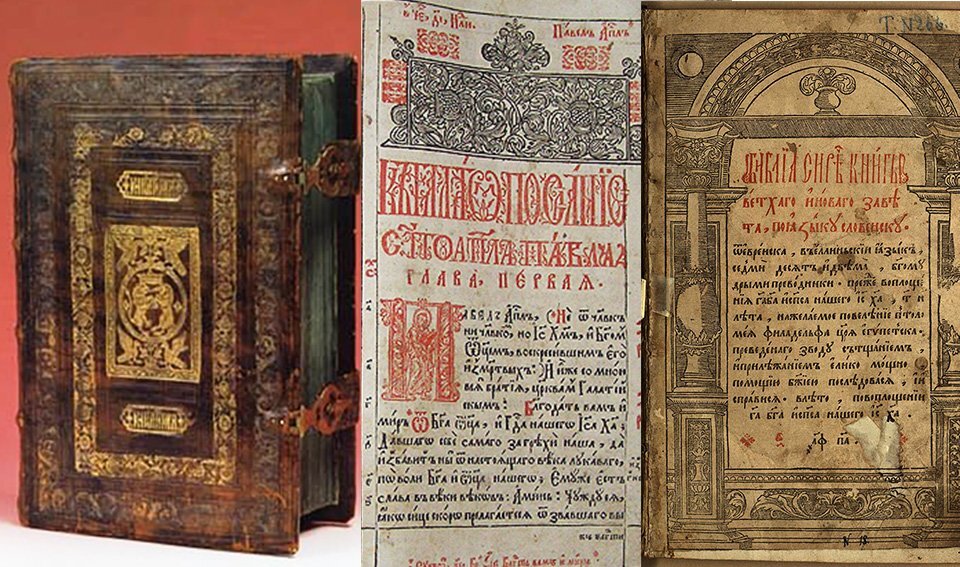 Павелъ Ап҃лъ
К галатѡмъ посланїе
ст҃го ап҃ла павла
глава, первая.
Павелъ Ап҃лъ, ни ѿ чл҃вкъ
ни чл҃вкомъ, но Іс҃ Хм҃ъ, и Бг҃ом
Ѿц҃емъ, воскресившим его
из мр҃твыхъ: И иже со мною
вся братїя, црквам Галатій
скымъ: Благодать вам и
миръ ѿ Бг҃а ѿц҃а, и Гд҃а нашего Іс҃а Ха҃:
Давшаго себе самаго за грѣхи наша, да
избавитъ ны ѿ настоящаго вѣка лукаваго,
по воли Бг҃а и ѿц҃а нашего, Емуже естъ
слава въ вѣки вѣковъ: Аминь: Чуждуся,
яко сице скоро прелагаетеся ѿ звавшаго вы
Т. 1266.
библїа сирѣч книгы
ветхаго и новаго завѣ
та, по языку словенску.
ѿ еврейска, въ еллиньскїй языкъ,
седмидесятъ и двѣма, бг҃ому
дрыми преводники. преже воплоще
нїя га҃ ба҃ и сп҃са нашего іс҃ ха҃, т҃ и
лѣта, на желаемое повелѣнїе птоло
мея филаделфа царя египетска.
преведенаго зводу сътщанїемъ,
и прилѣжанїем елико мощно
помощїю бж҃їею послѣдовася, и
справися. в лѣто, по воплощенїи
га҃ бг҃а и сп҃са нашего іс҃ ха҃.
҂аф па.